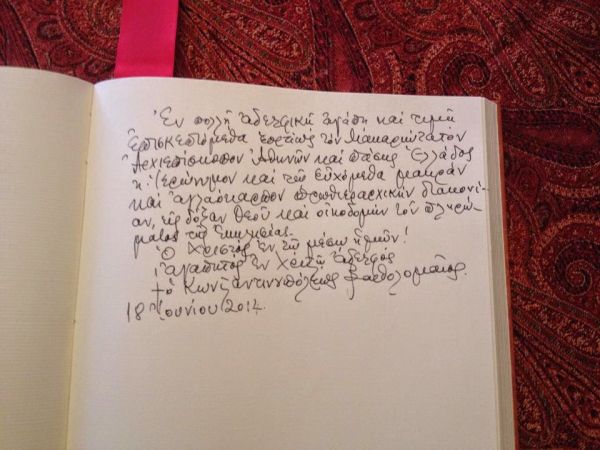 Ἐν πολλῇ ἀδελφικῇ ἀγάπῃ καί τιμῇ
ἐπισκεπτόμεθα ἑορτίως τόν Μακαριώτατον
Ἀρχιεπίσκοπον Ἀθηνῶν καί πάσης Ἑλλάδος
κ. Ἱερώνυμον καί τῷ εὐχόμεθα μακράν
καί ἀγλαόκαρπον πρωθιεραρχικήν διακονί-
αν, εἰς δόξαν Θεοῦ καί οἰκοδομήν τοῦ πληρώ-
ματος τῆς Ἐκκλησίας.
Ὁ Χριστός ἐν τῷ μέσῳ ἡμῶν!
Ἀγαπητός ἐν Χριστῷ ἀδελφός
† ὁ Κωνσταντινουπόλεως Βαρθολομαῖος
18 Ἰουνίου 2012